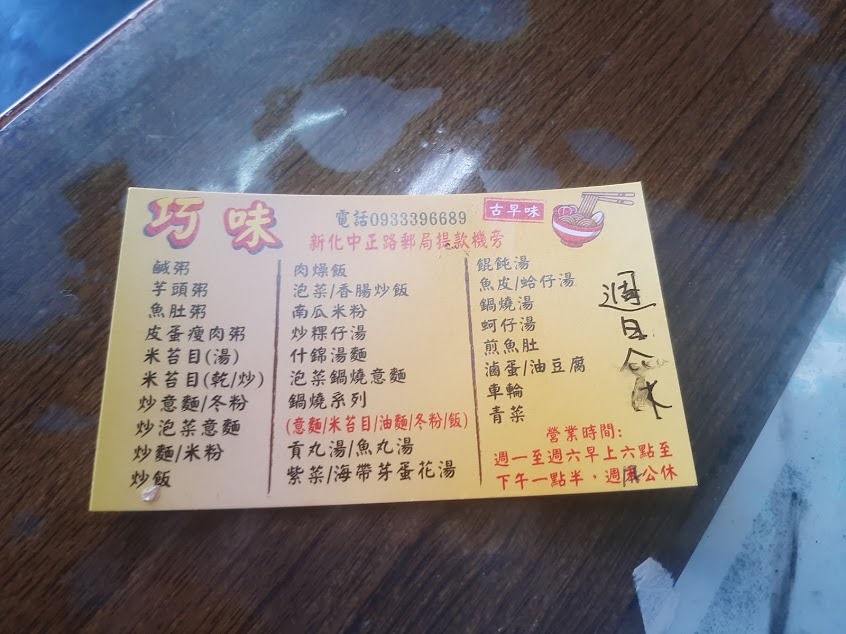 巧味
電話0933396689
古早味
新化中正路郵局提款機旁
鹹粥
芋頭粥
魚肚粥
皮蛋瘦肉粥
米苔目(湯)
米苔目(乾/炒)
炒意麵/冬粉
炒泡菜意麵
炒麵/米粉
炒飯
肉燥飯
泡菜/香腸炒飯
南瓜米粉
炒粿仔湯
什錦湯麵
泡菜鍋燒意麵
鍋燒系列
(意麵/米苔目/油麵/冬粉/飯)
貢丸湯/魚丸湯
紫菜/海帶芽蛋花湯
餛飩湯
魚皮/蛤仔湯
鍋燒湯
蚵仔湯
煎魚肚
滷蛋/油豆腐
車輪
青菜
營業時間:
週一至週六早上六點至
下午一點半，週公休
週日公休